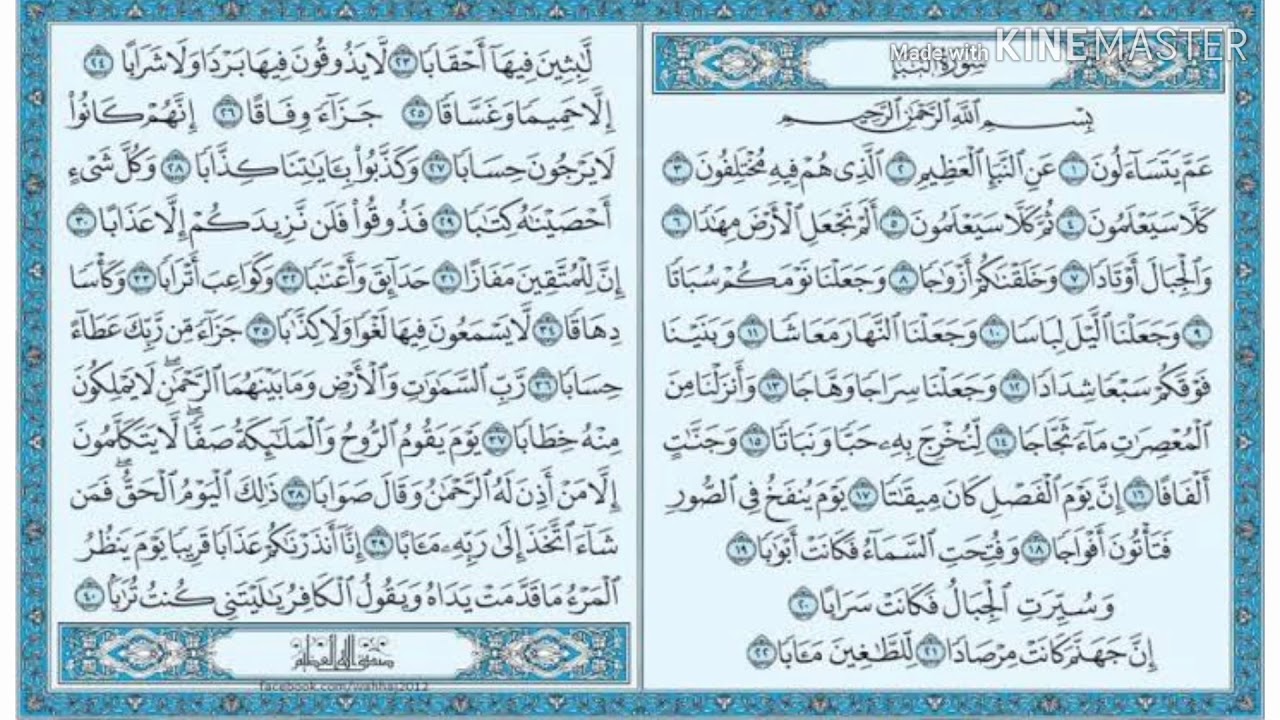 Made with KINEMASTER
سورة النبأ
بِسْمِ ٱللَّهِ ٱلرَّحْمَٰنِ ٱلرَّحِيمِ
عَمَّ يَتَسَآءَلُونَ ١ عَنِ ٱلنَّبَإِ ٱلْعَظِيمِ ٢ ٱلَّذِى هُمْ فِيهِ مُخْتَلِفُونَ ٣
كَلَّا سَيَعْلَمُونَ ٤ ثُمَّ كَلَّا سَيَعْلَمُونَ ٥ أَلَمْ نَجْعَلِ ٱلْأَرْضَ مِهَٰدًا ٦
وَٱلْجِبَالَ أَوْتَادًا ٧ وَخَلَقْنَٰكُمْ أَزْوَٰجًا ٨ وَجَعَلْنَا نَوْمَكُمْ سُبَاتًا
٩ وَجَعَلْنَا ٱلَّيْلَ لِبَاسًا ١٠ وَجَعَلْنَا ٱلنَّهَارَ مَعَاشًا ١١ وَبَنَيْنَا
فَوْقَكُمْ سَبْعًا شِدَادًا ١٢ وَجَعَلْنَا سِرَاجًا وَهَّاجًا ١٣ وَأَنزَلْنَا مِنَ
ٱلْمُعْصِرَٰتِ مَآءً ثَجَّاجًا ١٤ لِّنُخْرِجَ بِهِۦ حَبًّا وَنَبَاتًا ١٥ وَجَنَّٰتٍ
أَلْفَافًا ١٦ إِنَّ يَوْمَ ٱلْفَصْلِ كَانَ مِيقَٰتًا ١٧ يَوْمَ يُنفَخُ فِى ٱلصُّورِ
فَتَأْتُونَ أَفْوَاجًا ١٨ وَفُتِحَتِ ٱلسَّمَآءُ فَكَانَتْ أَبْوَٰبًا ١٩
وَسُيِّرَتِ ٱلْجِبَالُ فَكَانَتْ سَرَابًا ٢٠
إِنَّ جَهَنَّمَ كَانَتْ مِرْصَادًا ٢١ لِّلطَّٰغِينَ مَـَٔابًا ٢٢
لَّٰبِثِينَ فِيهَآ أَحْقَابًا ٢٣ لَّا يَذُوقُونَ فِيهَا بَرْدًا وَلَا شَرَابًا ٢٤
إِلَّا حَمِيمًا وَغَسَّاقًا ٢٥ جَزَآءً وِفَاقًا ٢٦ إِنَّهُمْ كَانُوا۟
لَا يَرْجُونَ حِسَابًا ٢٧ وَكَذَّبُوا۟ بِـَٔايَٰتِنَا كِذَّابًا ٢٨ وَكُلَّ شَىْءٍ
أَحْصَيْنَٰهُ كِتَٰبًا ٢٩ فَذُوقُوا۟ فَلَن نَّزِيدَكُمْ إِلَّا عَذَابًا ٣٠
إِنَّ لِلْمُتَّقِينَ مَفَازًا ٣١ حَدَآئِقَ وَأَعْنَٰبًا ٣٢ وَكَوَاعِبَ أَتْرَابًا ٣٣ وَكَأْسًا
دِهَاقًا ٣٤ لَّا يَسْمَعُونَ فِيهَا لَغْوًا وَلَا كِذَّٰبًا ٣٥ جَزَآءً مِّن رَّبِّكَ عَطَآءً
حِسَابًا ٣٦ رَّبِّ ٱلسَّمَٰوَٰتِ وَٱلْأَرْضِ وَمَا بَيْنَهُمَا ٱلرَّحْمَٰنِ ۖ لَا يَمْلِكُونَ
مِنْهُ خِطَابًا ٣٧ يَوْمَ يَقُومُ ٱلرُّوحُ وَٱلْمَلَٰٓئِكَةُ صَفًّا ۖ لَّا يَتَكَلَّمُونَ
إِلَّا مَنْ أَذِنَ لَهُ ٱلرَّحْمَٰنُ وَقَالَ صَوَابًا ٣٨ ذَٰلِكَ ٱلْيَوْمُ ٱلْحَقُّ ۖ فَمَن
شَآءَ ٱتَّخَذَ إِلَىٰ رَبِّهِۦ مَـَٔابًا ٣٩ إِنَّآ أَنذَرْنَٰكُمْ عَذَابًا قَرِيبًا يَوْمَ يَنظُرُ
ٱلْمَرْءُ مَا قَدَّمَتْ يَدَاهُ وَيَقُولُ ٱلْكَافِرُ يَٰلَيْتَنِى كُنتُ تُرَٰبًۢا ٤٠
صدق الله العظيم
facebook.com/wahhaj2012